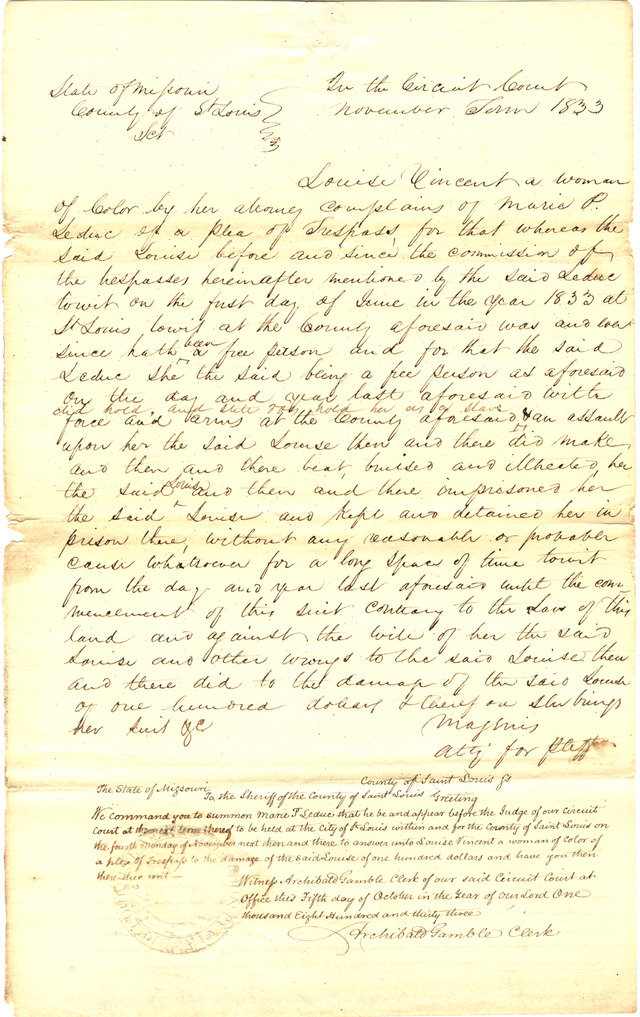 State of Missouri
County of St Louis
Sct
In the Circuit Court
November Term 1833
Louise Vincent a woman
of Color by her attorney complains of Marie P.
Leduc of a plea of Trespass, for that whereas the
said Louise before and since the commission of
the trespasses hereinafter mentioned by the said Leduc
towit on the first day of June in the year 1833 at
St Louis towit at the County aforesaid was and ever
since hath been a free person and for that the said
Leduc she the said being a free person as aforesaid
on the day and year last aforesaid with
did hold, and still doth hold her as a slave
force and arms at the County aforesaid & an assault
upon her the said Louise then and there did make
and then and there beat, bruised and illtreated her
the said Louise and then and there imprisoned her
the said Louise and kept and detained her in
prison there, without any reasonable or probable
cause whatsoever for a long space of time towit
from the day and year last aforesaid until the com
mencement of this suit contrary to the Law of this
land and against the will of her the said
Louise and other wrongs to the said Louise then
and there did to the damage of the said Louise
of one hundred dollars & therefore she brings
her suit &c
Magenis
Atty for Plff
The State of Missouri County of Saint Louis Ss
To the Sheriff of the County of Saint Louis Greeting
We command you to summon Marie P Leduc that he be and appear before the Judge of our Circuit
Court at the next term thereof to be held at the City of St Louis within and for the County of Saint Louis on
the fourth Monday of November next then and there to answer unto Louise Vincent a woman of Color of
a plea of Trespass to the damage of the said Louise of one hundred dollars and have you then
there this writ —
Witness Archibald Gamble Clerk of our said Circuit Court at
Office this Fifth day of October in the Year of our Lord One
thousand Eight Hundred and thirty three
Archibald Gamble Clerk